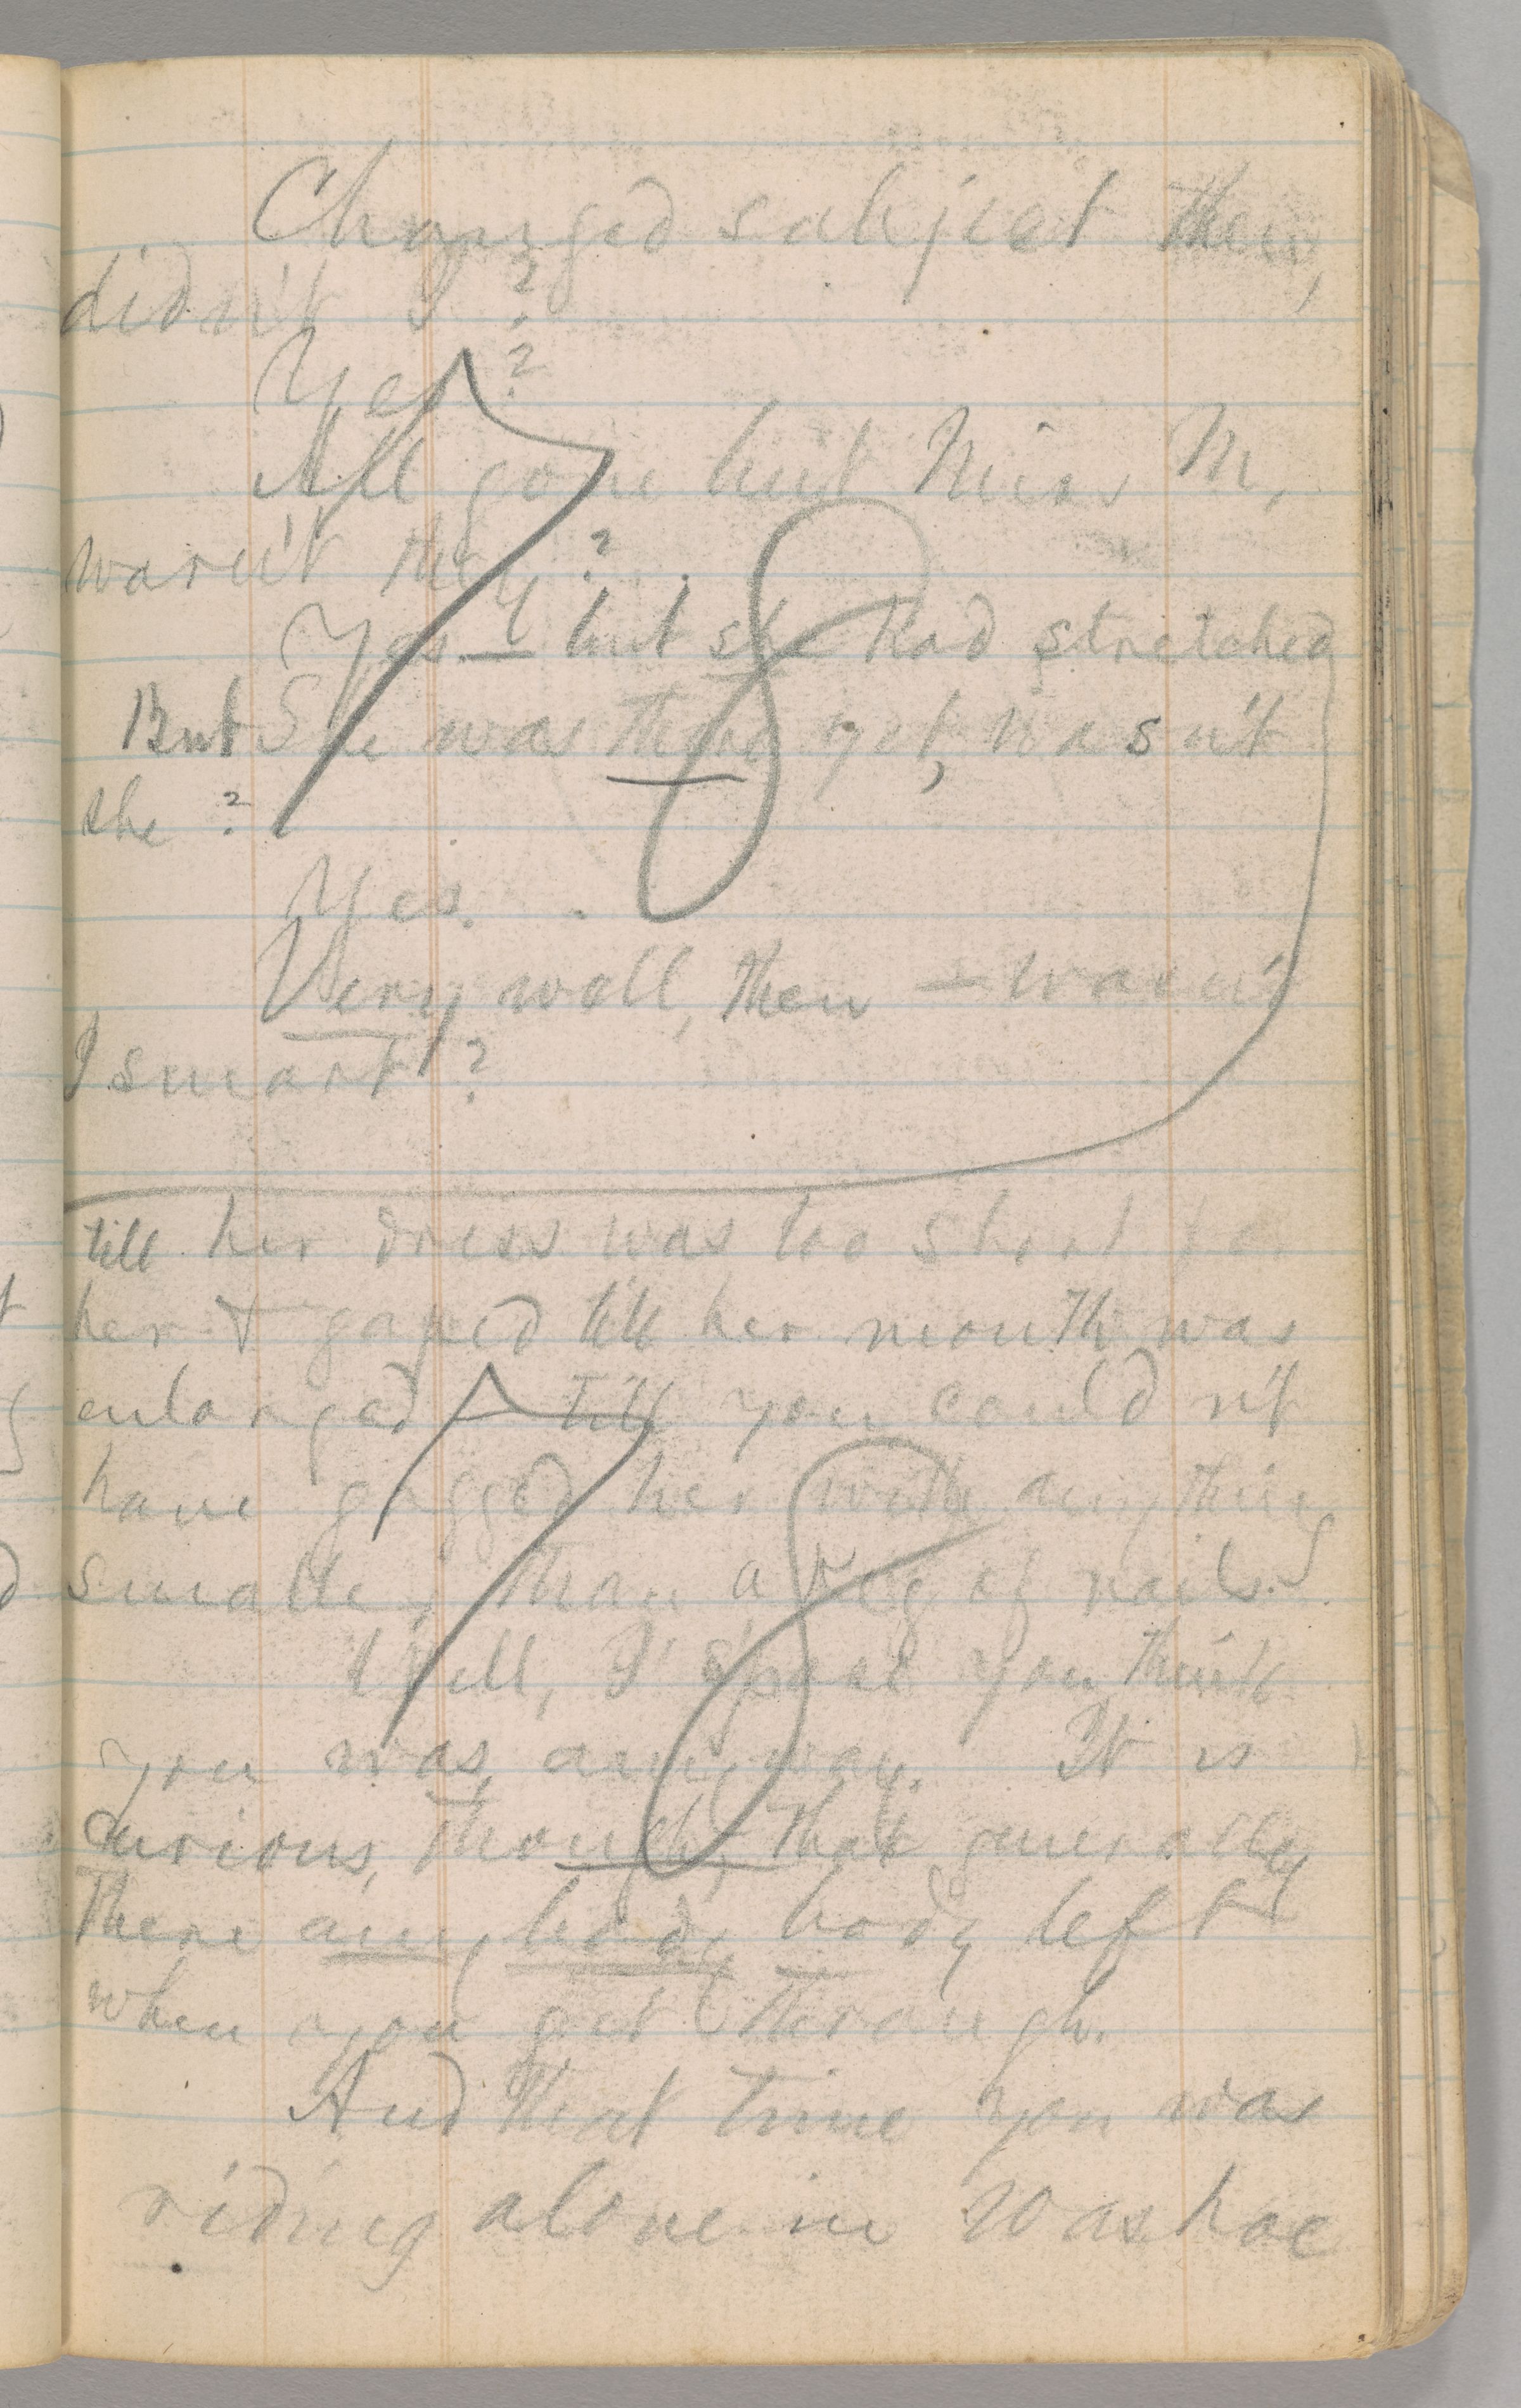 Changed subject then,
didn't I?
Yes?
All gone but Miss M,
warn't they?
Yes — but she had stretched
But She was there yet, wasn't
she?
Yes.
Very well, then — warn't
I smart?
till her dress was too short for
her & gaped till her mouth was
enlarged till you could n't
have gagged her with anything
smaller than a keg of nails.
Well, I spose you think
you was, any way. It is
curious, though, that generally
there any body body left
when you get through.
And that time you was
riding alone in Washoe